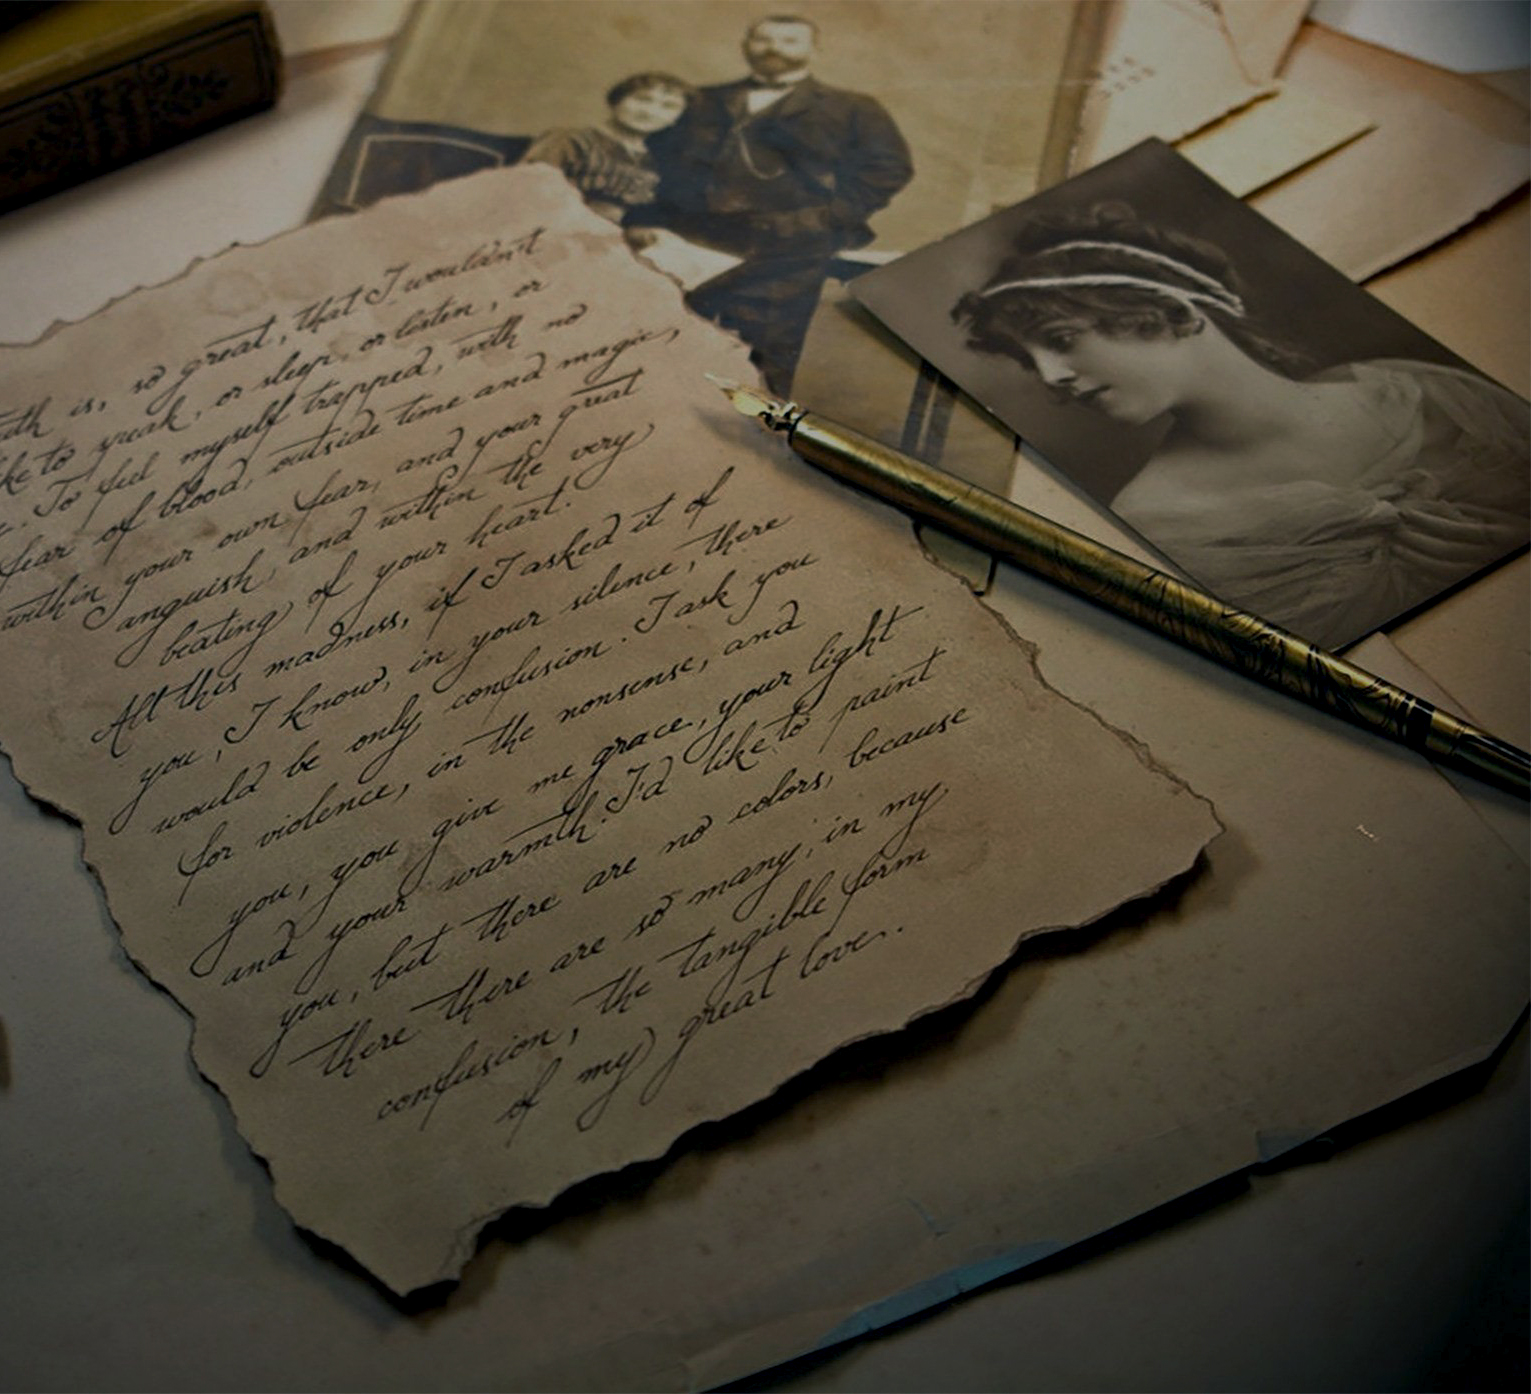 is, so great, that I wouldn't
to speak, or sleep, or listen, or
To feel myself trapped, with no
fear of blood, outside time and magic,
within your own fear, and your great
anguish, and within the very
beating of your heart.
All this madness, if I asked it of
you, I know, in your silence, there
would be only confusion. I ask you
for violence, in the nonsense, and
you, you give me grace, your light
and your warmth. I'd like to paint
you, but there are no colors, because
there there are so many, in my
confusion, the tangible form
of my great love.